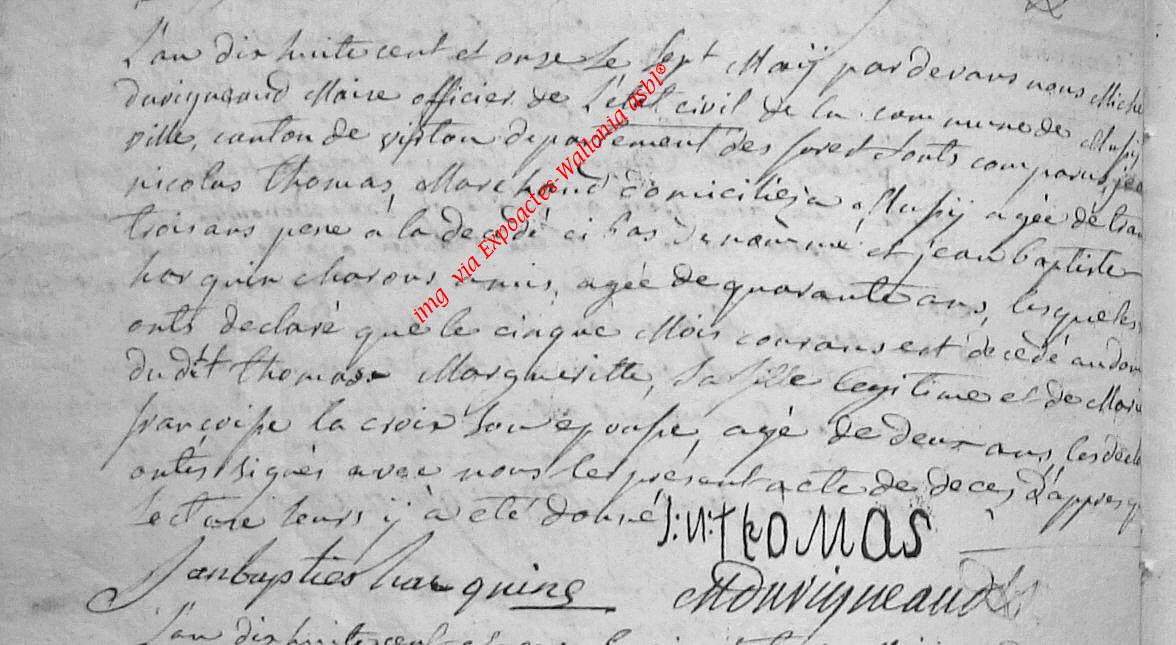 L'an dix huite cent et onze le sept Maÿ pardevans nous Miche
duvigneaud Maire officier de L'état civil de la commune de Mussÿ
ville, canton de virton departement des forest sonts comparus, jea
nicolas thomas, Marchand domicilié, a Mussÿ agée de tran
trois ans pere à la décédé ci bas denommé et jean baptiste
harquin charons amis, agée de quarante ans, lesquels
onts declaré que le cinque Mois courans est decedé audom
dudit thomas Margueritte, sa fille legitime et de Mari
françoise la croix son epouse, agé de deux ans, les decla
onts signés avec nous le présent acte de deces d'appres q
lecture leurs ÿ à eté donné
J: N: thoMAs
Janbapties harquins
MDuvigneaud
L'an dix huite cent et
img via Expoactes-Wallonia asbl®